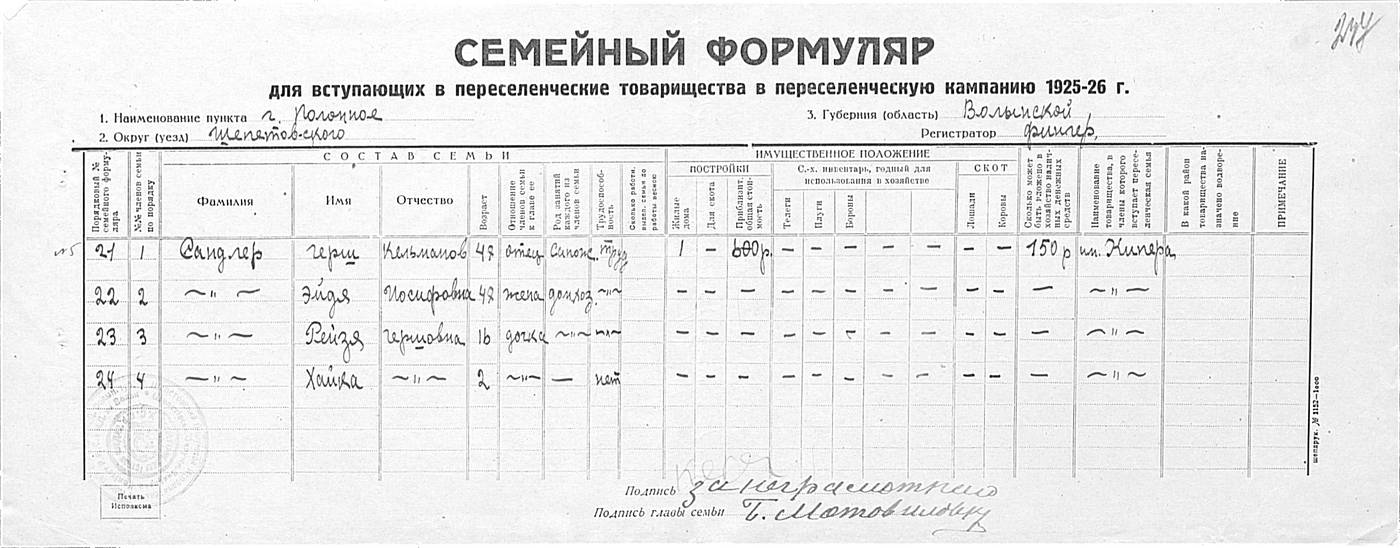 244
СЕМЕЙНЫЙ ФОРМУЛЯР
для вступающих в переселенческие товарищества в переселенческую кампанию 1925-26 г.
1. Наименование пункта г. Полонное
3. Губерния (область) Волынской
2. Округ (уезд) Шепетовского
Регистратор Фингер,
СОСТАВ СЕМЬИ
ИМУЩЕСТВЕННОЕ ПОЛОЖЕНИЕ
ПОСТРОЙКИ
С.-х. инвентарь, годный для использования в хозяйстве
СКОТ
Порядковый № семейного формуляра
№№ членов семьи по порядку
Фамилия
Имя
Отчество
Возраст
Отношение членов семьи к главе ее
Род занятий каждого из членов семьи
Трудоспособность
Сколько работн. выдел. семья до работы весною
Жилые дома
Для скота
Приблизит. общая стоимость
Телеги
Плуги
Бороны
Лошади
Коровы
Сколько может быть вложено в хозяйство наличных денежных средств
Наименование товарищества, в члены которого вступает переселенческая семья
В какой район товарищества назначено водворение
ПРИМЕЧАНИЕ
21 1 Сандлер Герш Кельманов 48 отец Сапож. труд 1 — 600 р. — — — — — — — — 150 р им. Кипера
22 2 —"— Эйдя Иосифовна 48 жена домхоз. —"— — — — — — — — — — — — — —"—
23 3 —"— Рейзя Гершовна 16 дочка —"— —"— — — — — — — — — — — — — —"—
24 4 —"— Хайка —"— 2 —"— — нет — — — — — — — — — — — — —"—
Печать
Исполкома
Подпись за неграмотного
Подпись главы семьи Б. Мотовиловку
шепдрук. № 1152—1000